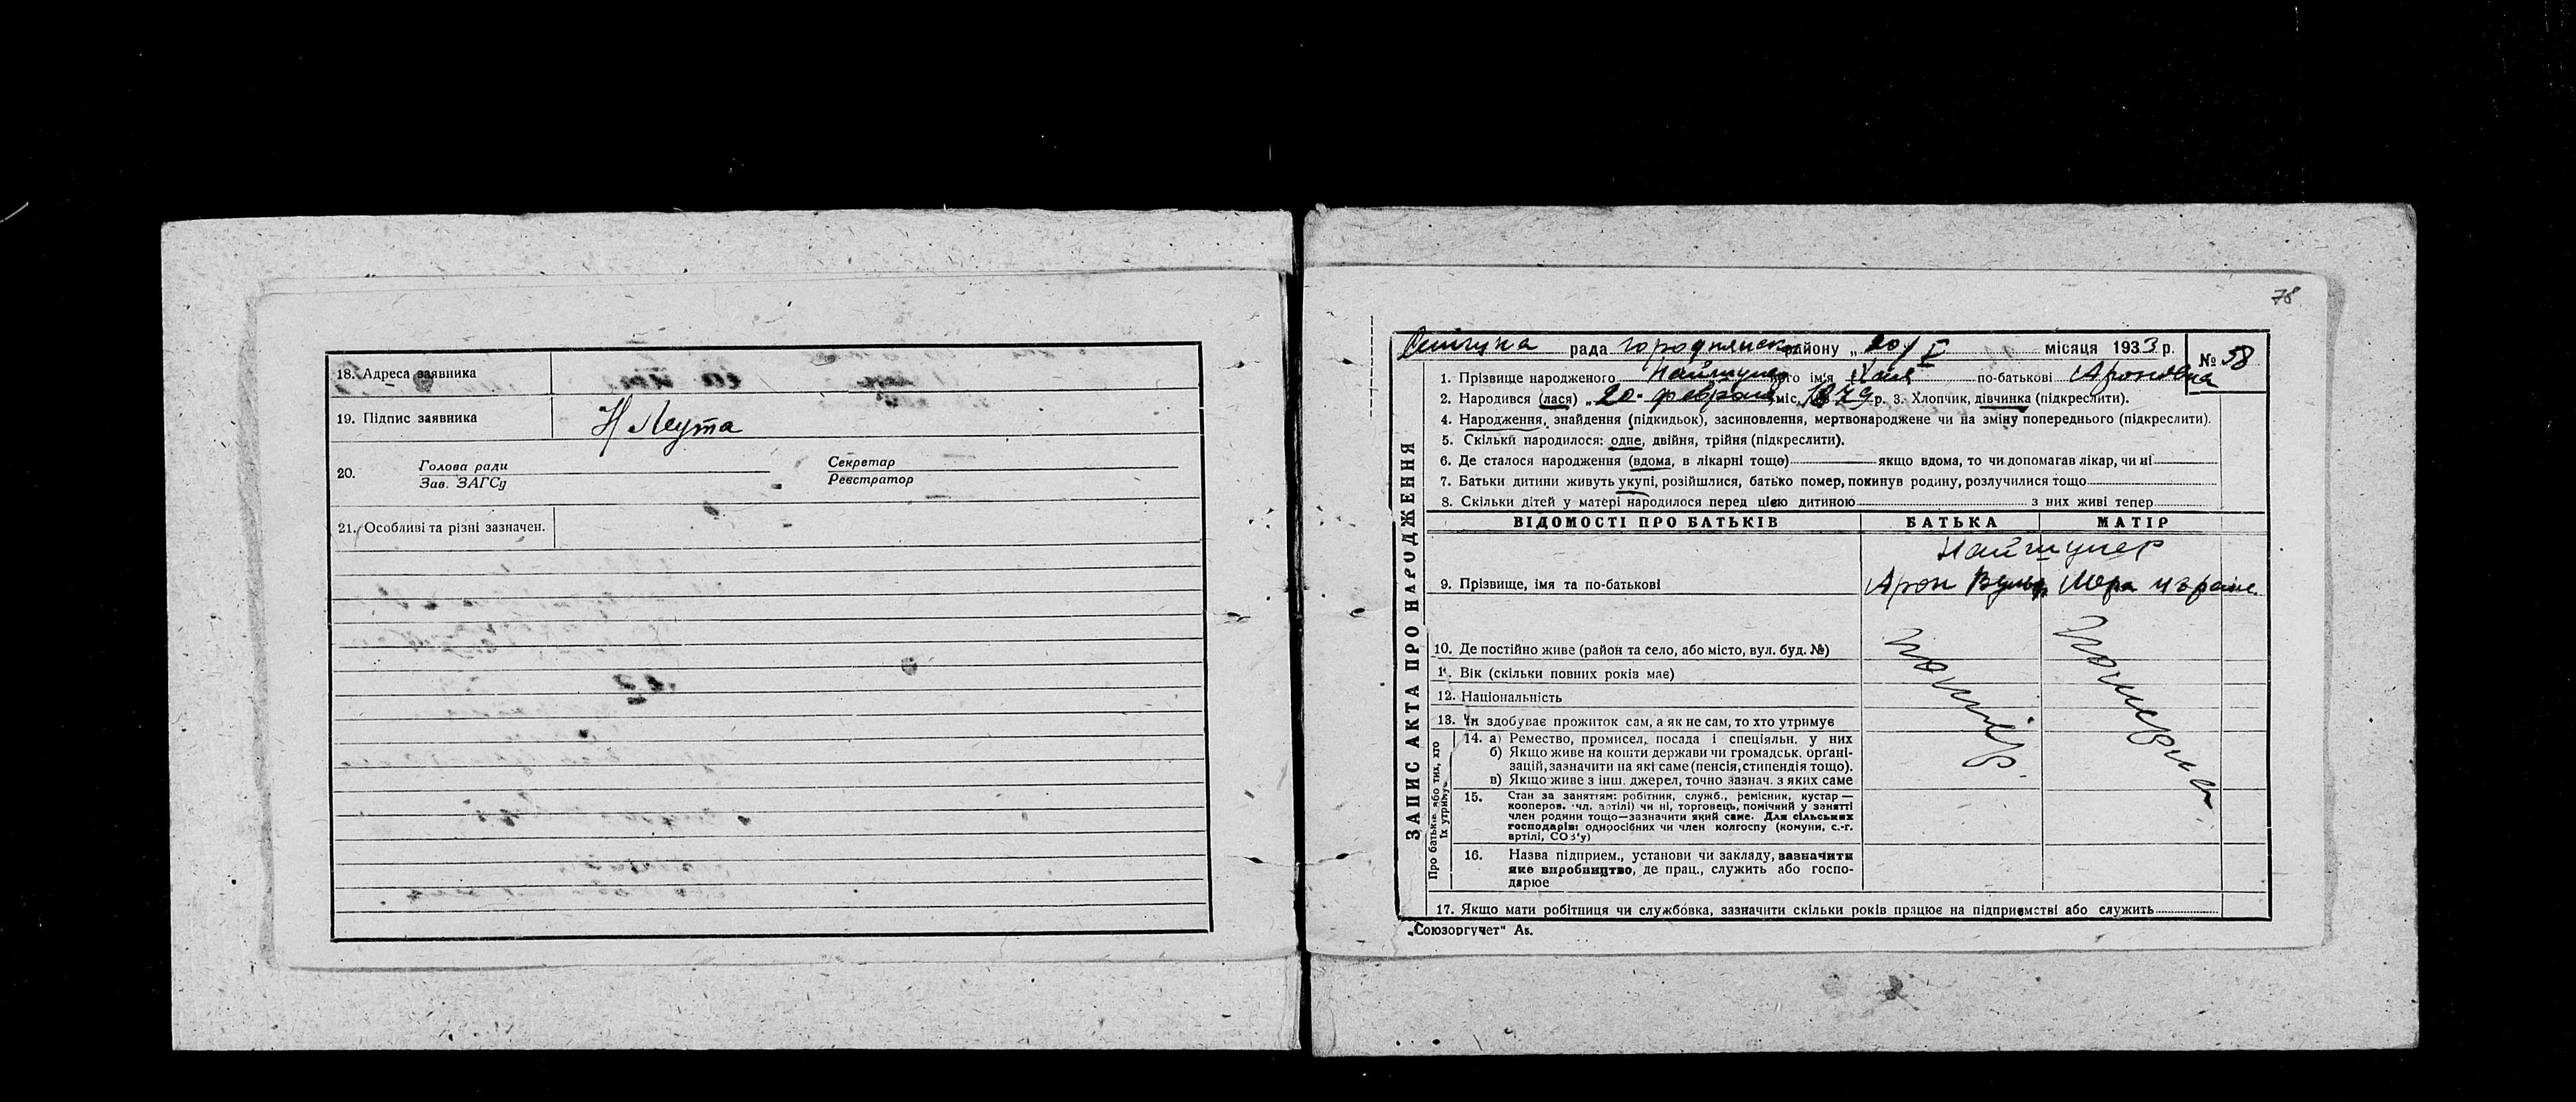 18. Адреса заявника
19. Підпис заявника Н Леута
20. Голова ради Секретар
Зав. ЗАГСу Реєстратор
21. Особливі та різні зазначен.
78
рада району „20/ І місяця 1933 р. № 58
1. Прізвище народженого Наймтулер ім'я Хая по-батькові Ароновна
2. Народився (лася) „20. февраля міс. 1879 р. 3. Хлопчик, дівчинка (підкреслити).
4. Народження, знайдення (підкидьок), засиновлення, мертвонароджене чи на зміну попереднього (підкреслити).
5. Скільки народилося: одне, двійня, трійня (підкреслити).
6. Де сталося народження (вдома, в лікарні тощо) якщо вдома, то чи допомагав лікар, чи ні
7. Батьки дитини живуть укупі, розійшлися, батько помер, покинув родину, розлучилися тощо
8. Скільки дітей у матері народилося перед цією дитиною з них живі тепер
ЗАПИС АКТА ПРО НАРОДЖЕННЯ
ВІДОМОСТІ ПРО БАТЬКІВ БАТЬКА МАТІР
9. Прізвище, імя та по-батькові Арон
10. Де постійно живе (район та село, або місто, вул. буд. №)
11. Вік (скільки повних років має)
12. Національність
13. Чи здобуває прожиток сам, а як не сам, то хто утримує
Про батьків або тих, хто їх утримує
14. а) Ремество, промисел, посада і спеціяльн. у них
б) Якщо живе на кошти держави чи громадськ. органі-
зацій, зазначити на які саме (пенсія, стипендія тощо).
в) Якщо живе з інш. джерел, точно зазнач. з яких саме
15. Стан за заняттям: робітник, служб., ремісник, кустар —
кооперов. чл. артілі) чи ні, торговець, помічний у занятті
член родини тощо—зазначити який саме. Для сільських
господарів: одноосібних чи член колгоспу (комуни, с.-г.
артілі, СОЗ'у)
16. Назва підприєм., установи чи закладу, зазначити
яке виробництво, де прац., служить або госпо-
дарює
17. Якщо мати робітниця чи службовка, зазначити скільки років працює на підприємстві або служить
„Союзоргучет" Ав.